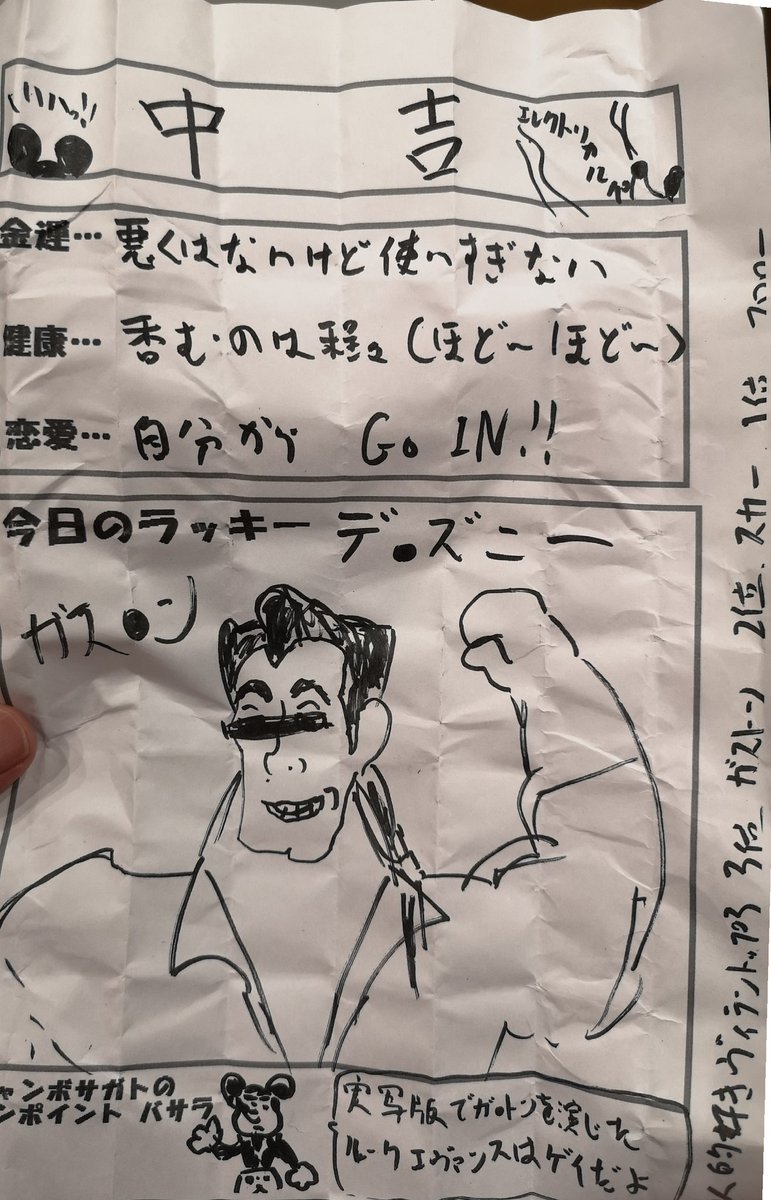 ハハッ!!
中吉
エレクトリカル
金運… 悪くはないけど使いすぎない
健康… 呑むのは程々(ほど〜ほど〜)
恋愛… 自分から Go IN!!
今日のラッキー デ●ズニー
ガス●ン
ャンボサガトの
ンポイント バサラ
実写版でガ●トンを演じた
ルークエヴァンスはゲイだよ
人的好きヴィラントップ3 3位 ガストーン 2位、スカー 1位 フロロー